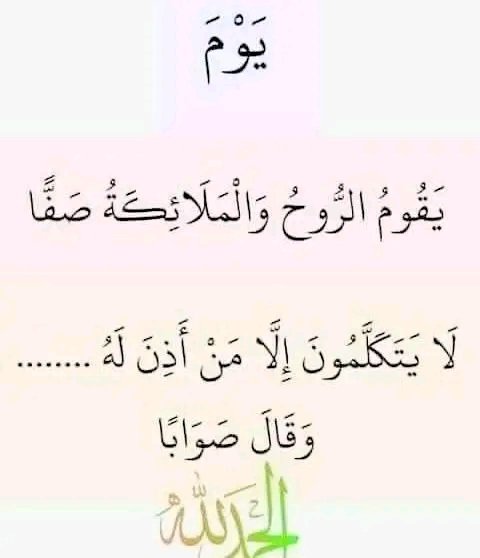 يَوْمَ
يَقُومُ الرُّوحُ وَالْمَلَائِكَةُ صَفًّا
لَا يَتَكَلَّمُونَ إِلَّا مَنْ أَذِنَ لَهُ ........
وَقَالَ صَوَابًا
الحمد لله